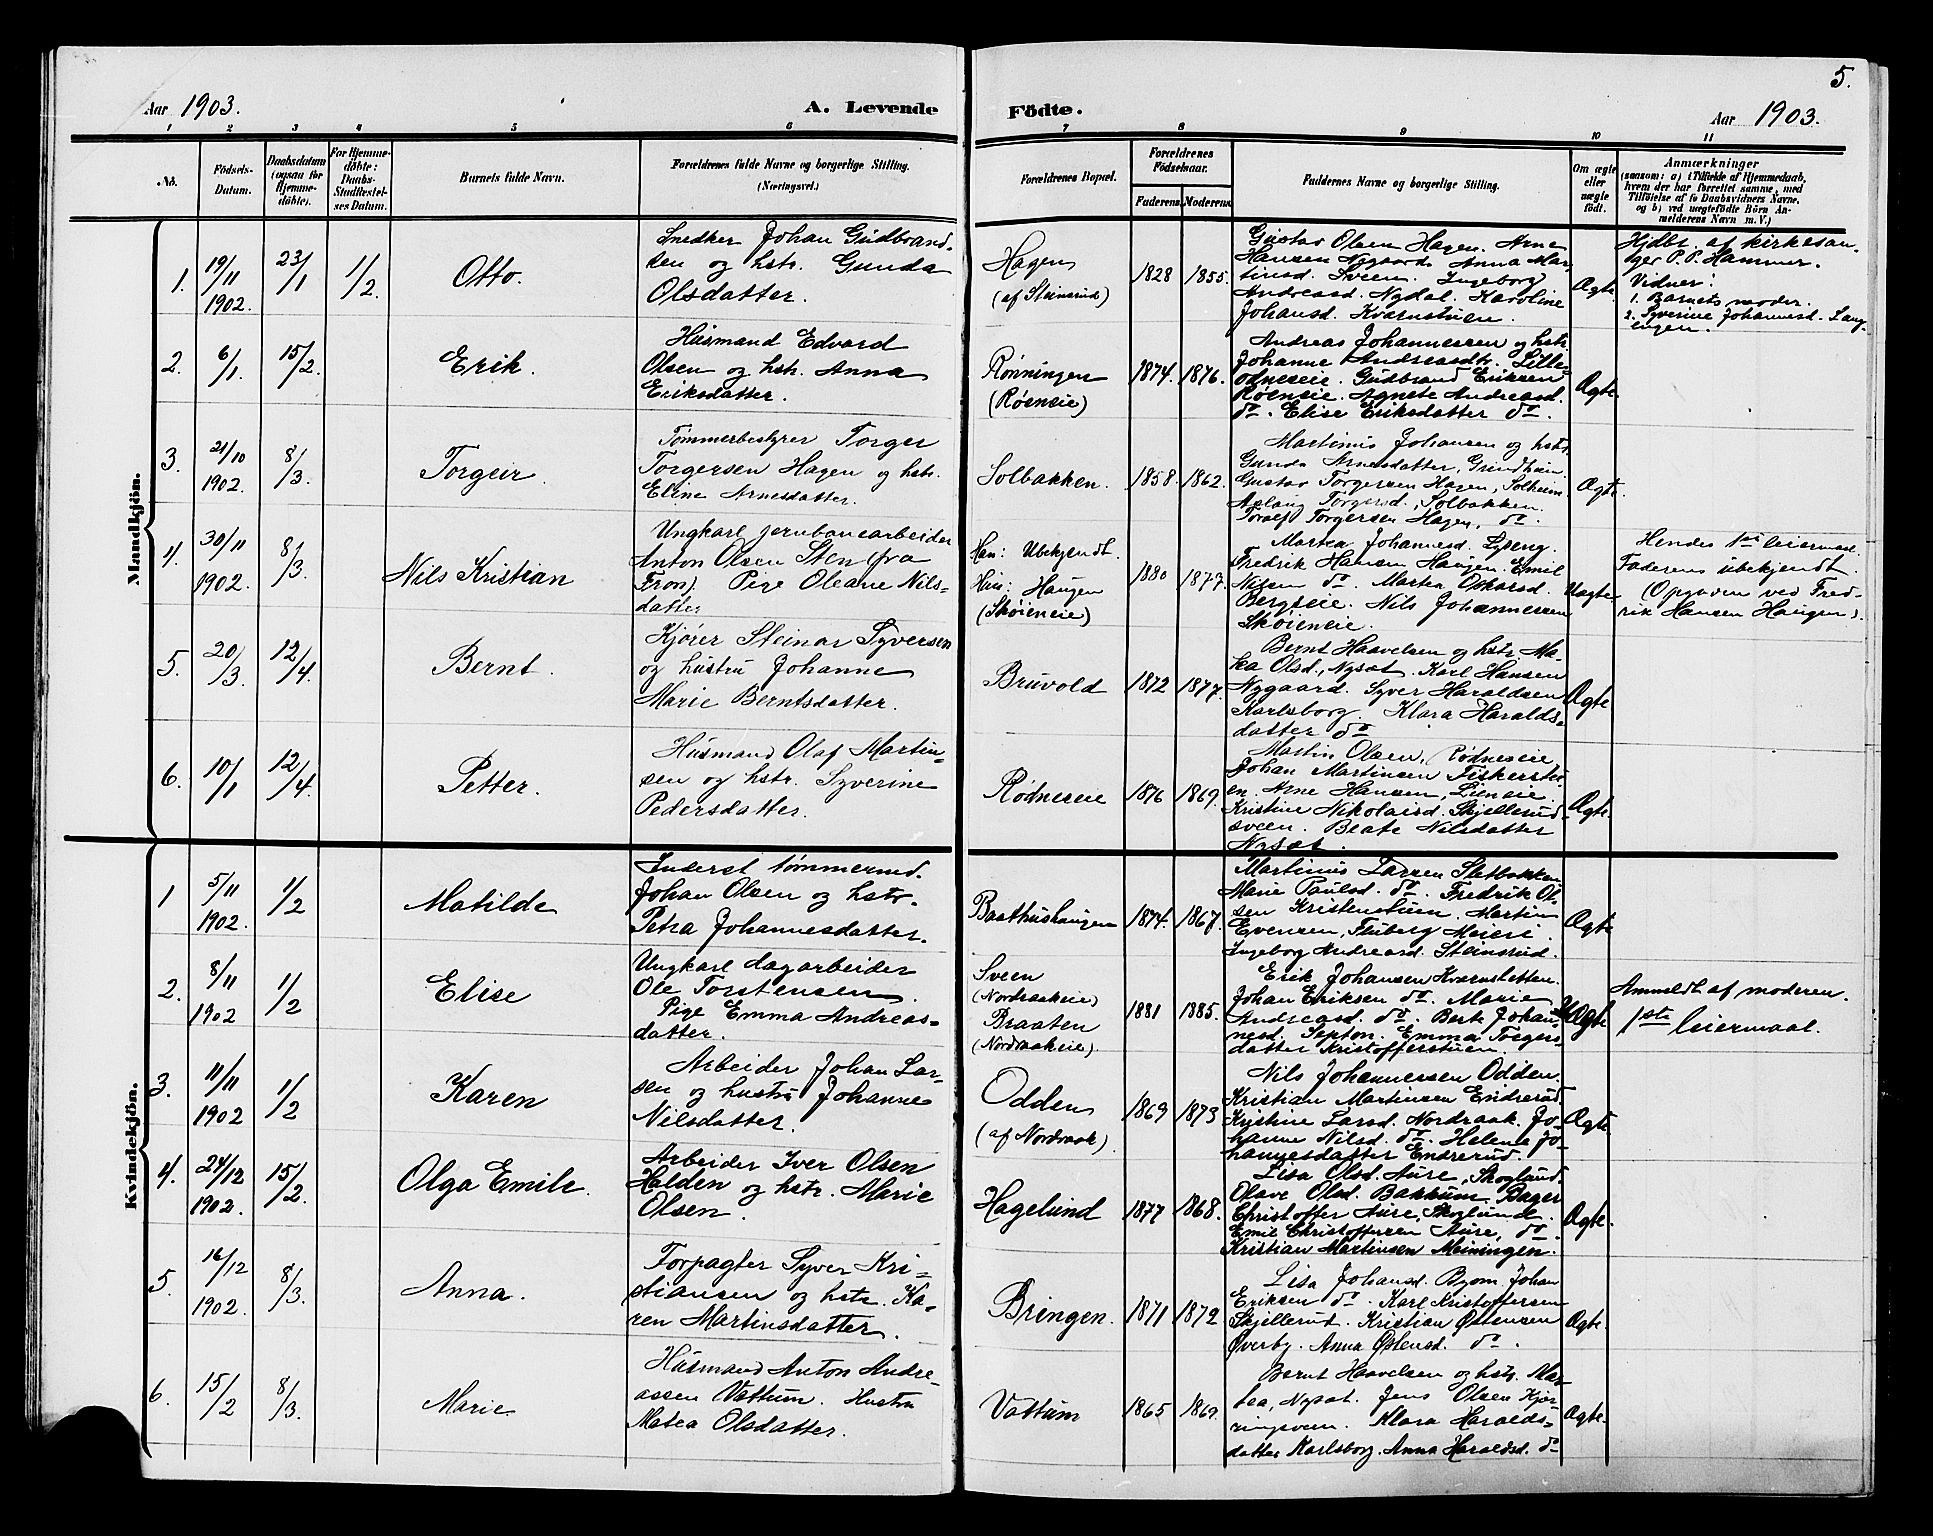 5.
Aar 1903.
A. Levende
Födte.
Aar 1903.
1 2 3 4 5 6 7 8 9 10 11
No.
Födsels-
Datum.
Daabsdatum
(ogsaa for
Hjemme-
döbte).
For Hjemme-
döbte:
Daabs-
Stadfæstel-
ses Datum.
Barnets fulde Navn.
Forældrenes fulde Navne og borgerlige Stilling.
(Næringsvei.)
Forældrenes Bopæl.
Forældrenes
Födselsaar.
Faderens. Moderens.
Faddernes Navne og borgerlige Stilling.
Om ægte
eller
uægte
födt.
Anmærkninger
(saasom: a) i Tilfælde af Hjemmedaab,
hvem der har forrettet samme, med
Tilföielse af to Daabsvidners Navne,
og b) ved uægtefödte Börn An-
melderens Navn m. V.)
Mandkjön.
1.
19/11
1902.
23/1
1/2
Otto.
Snedker Johan Gudbrand-
sen og hstr. Gunda
Olsdatter.
Hagen
(af Steinsrud)
1828 1855.
Gustav Olsen Hagen. Arne
Hansen Nygaard. Anna Mar-
tinsd. Sveen. Ingeborg
Andreasd. Nydal. Karoline
Johansd. Kvernstuen.
Ægte
Hjdbt. af kirkesan-
ger P. P. Hammer.
Vidner:
1. Barnets moder.
2. Syverine Johannesd. Lang-
engen.
2.
6/1
15/2.
Erik.
Husmand Edvard
Olsen og hstr. Anna
Eriksdatter.
Rønningen
(Røeneie)
1874. 1876.
Andreas Johannessen og hstr.
Johanne Andreasdtr. Lille-
odneseie. Gudbrand Eriksen
Røeneie. Agnete Andreasd.
do. Elise Eriksdatter do.
Ægte
3.
21/10
1902.
8/3.
Torgeir.
Tømmerbestyrer Torger
Torgersen Hagen og hstr.
Eline Arnesdatter.
Solbakken.
1858. 1862.
Martinus Johansen og hstr.
Gunda Arnesdatter, Grindheim
Gustav Torgersen Hagen, Solheim
Aslaug Torgersd., Solbakken.
Toralf Torgersen Hagen, do
Ægte.
4.
30/11
1902.
8/3.
Nils Kristian
Ungkarl jernbanearbeider
Anton Olsen Sten (fra
Fron). Pige Oleane Nils-
datter
Han: Ubekjendt.
Hun: Haugen
(Skøieneie)
1880 1877.
Martea Johannesd. Lyseng.
Fredrik Hansen Haugen. Emil
Nilsen do. Martea Oskarsd.
Bergseie. Nils Johannessen
Skøieneie.
Uægte
Hendes 1ste leiermaal.
Faderens ubekjendt.
(Opgaven ved Fred-
rik Hansen Haugen).
5.
20/3
12/4.
Bernt.
Kjører Steinar Syversen
og hustru Johanne
Marie Berntsdatter.
Bruvold
1872 1877.
Bernt Haavelsen og hstr. Ma-
Olsd., Nysæt. Karl Hansen
Nygaard. Syver Haraldsen
Karlsborg. Klara Haralds-
datter do
Ægte
6.
10/1
12/4.
Petter.
Husmand Olaf Martin-
sen og hstr. Syverine
Pedersdatter.
Rødneseie
1876 1869.
Martin Olsen, Rødneseie
Johan Martinsen Fiskerstu-
en. Arne Hansen, Lieneie.
Kristine Nikolaisd. Skjellerud-
sveen. Beate Nilsdatter
Nysæt.
Ægte.
Kvindekjön.
1
5/11
1902.
1/2
Matilde
Inderst tømmermd.
Johan Olsen og hstr.
Petra Johannesdatter.
Baathushaugen
1874. 1867.
Martinus Larsen Sletbakken
Marie Paulsd. do. Fredrik Ol-
sen Kristenstuen, Martin
Evensen, Fluberg Meieri.
Ingeborg Andreasd. Steinsrud.
Ægte
2.
8/11
1902
1/2
Elise
Ungkarl dagarbeider
Ole Torstensen.
Pige Emma Andreas-
datter.
Sveen
(Nordraakeie)
Braaten
(Nordraakeie).
1881 1885.
Erik Johansen Kvernstetten.
Johan Eriksen do. Marie
Andreasd. do. Berte Johan-
nesd. Septon. Emma Torgers-
datter Kristofferstuen.
Uægte
Anmeldt af moderen.
1ste leiermaal.
3.
11/11
1902
1/2
Karen
Arbeider Johan Lar-
sen og hustru Johanne
Nilsdatter.
Odden
(af Nordraak)
1869 1873
Nils Johannessen Odden.
Kristian Martinsen Endrerud.
Kristine Larsd. Nordraak. Jo-
hanne Nilsd. do. Helene Jo-
hannesdatter Endrerud.
Ægte.
4.
24/12
1902.
15/2.
Olga Emile.
Arbeider Iver Olsen
Halden og hstr. Marie
Olsen.
Hagelund
1877 1868.
Lisa Olsd. Aure, Skoglund.
Olave Olsd. Bakkum, Bager
Christoffer Aure, Skoglund.
Emil Christoffersen Aure, do.
Kristian Martinsen Meiningen.
Ægte.
5.
16/12
1902.
8/3.
Anna.
Forpagter Syver Kri-
stiansen og hstr. Ka-
ren Martinsdatter.
Bringen.
1871 1872
Lisa Johansd. Byom. Johan
Eriksen do. Karl Kristoffersen
Skjellerud. Kristian Østensen
Øverby. Anna Østensd. do.
Ægte.
6.
15/2
8/3.
Marie.
Husmand Anton Andre-
assen Vattum. Hustru
Matea Olsdatter.
Vattum
1865 1869.
Bernt Haavelsen og hstr. Mar-
tea, Nysæt. Jens Olsen Kjør-
ringsveen. Klara Haralds-
datter Karlsborg. Anna Haraldsd. do
Ægte.